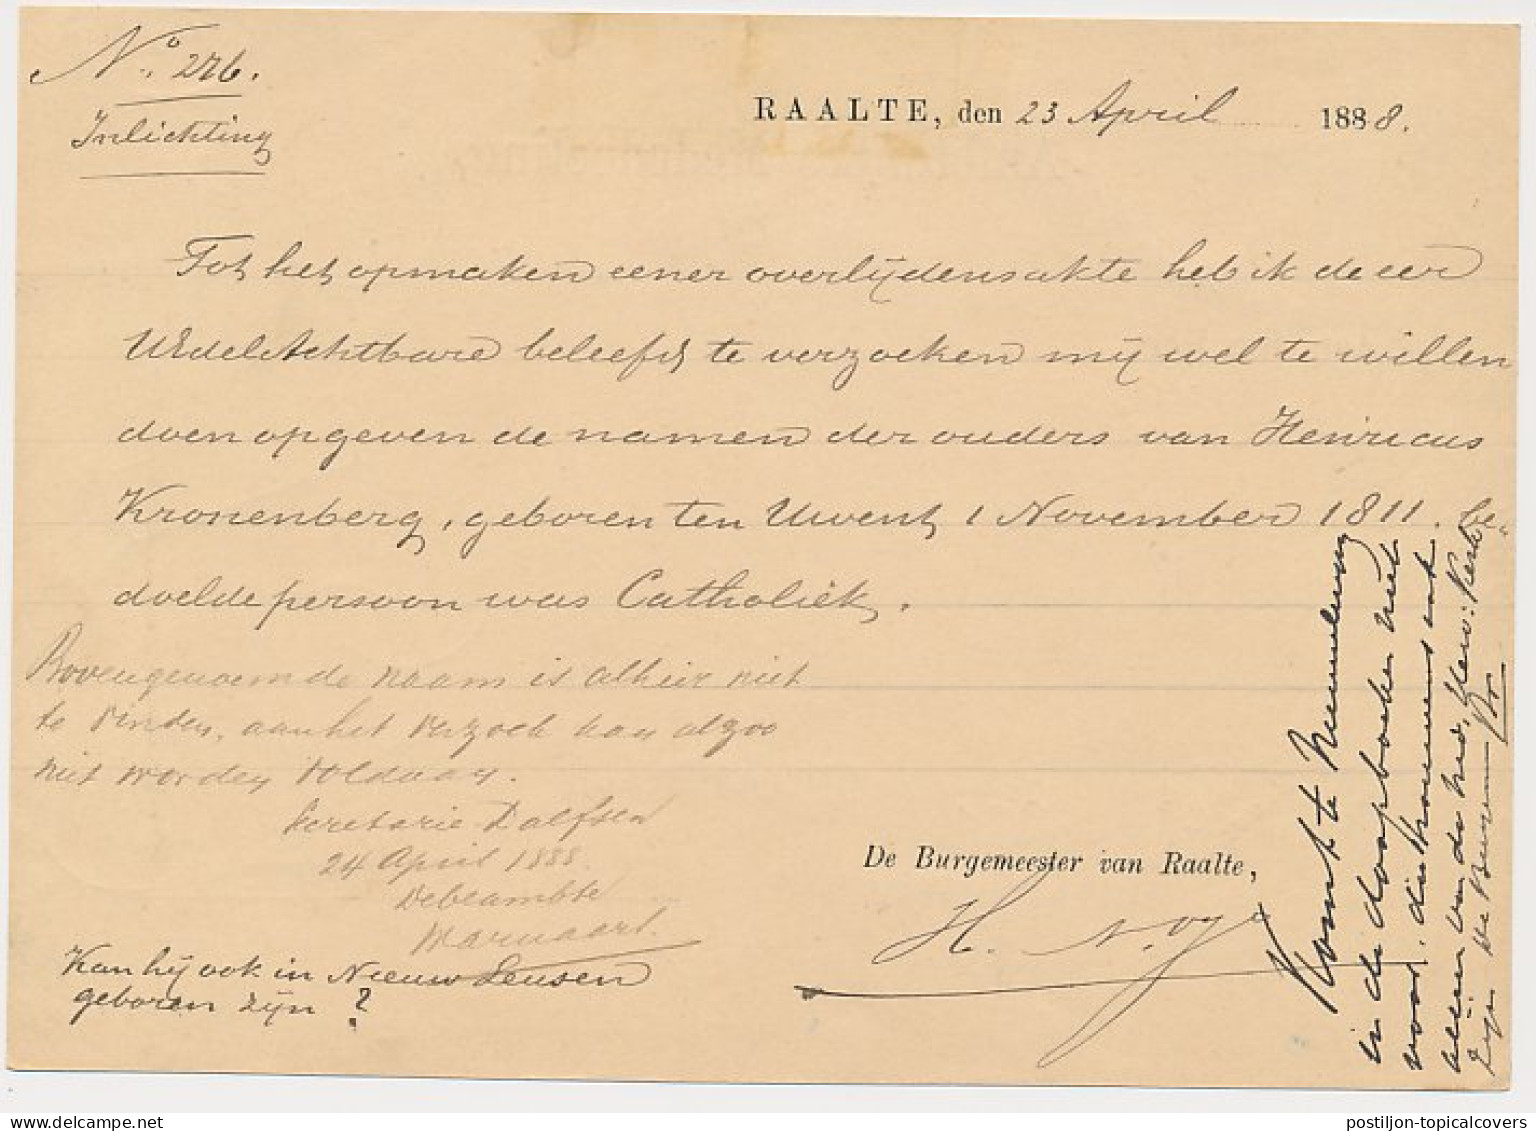 No. 276.
Inlichting
RAALTE, den 23 April 1888.
Tot het opmaken eener overlijdensakte heb ik de eer
UEdelAchtbare beleefd te verzoeken mij wel te willen
doen opgeven de namen der ouders van Henricus
Kronenberg, geboren ten 1 November 1811. be-
doelde persoon was Catholiek.
Bovengenoemde naam is alhier niet
te vinden, aan het verzoek kan alzoo
niet worden voldaan.
Secretarie Dalfsen
24 April 1888.
De beambte
Kan hij ook in Nieuw Leusen
geboren zijn?
De Burgemeester van Raalte,
Komt te Nieuwleusen
in de doopboeken niet
voor, die trouwens ook
alleen van de Ned. Herv: Kerk
zijn De Burgem